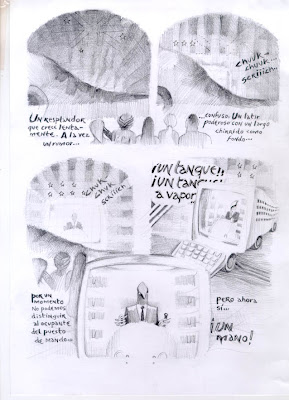 Un resplandor
que creció lenta-
mente. A la vez
un rumor...
chuuk-
chuuk-
scriiich...
...confuso. Un latir
poderoso con un largo
chirrido como
fondo...
chuk
chuk
scriiich
¡un tanque!!
¡un tanque
a vapor
por un
momento
no podemos
distinguir
al ocupante
del puesto
de mando...
pero ahora
sí...
¡un
mano!